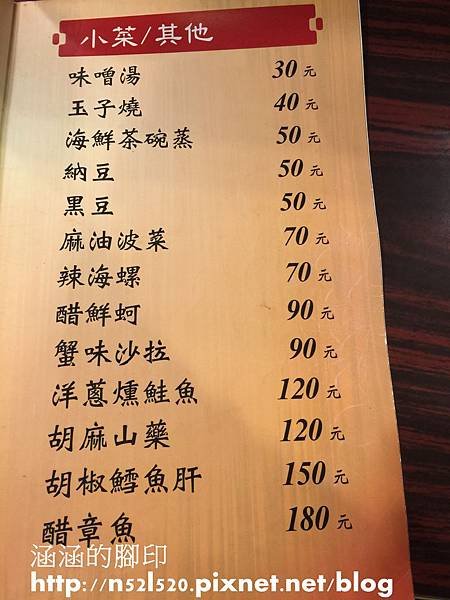 小菜/其他
味噌湯 30元
玉子燒 40元
海鮮茶碗蒸 50元
納豆 50元
黑豆 50元
麻油波菜 70元
辣海螺 70元
醋鮮蚵 90元
蟹味沙拉 90元
洋蔥燻鮭魚 120元
胡麻山藥 120元
胡椒鱈魚肝 150元
醋章魚 180元
涵涵的腳印
http://n521520.pixnet.net/blog